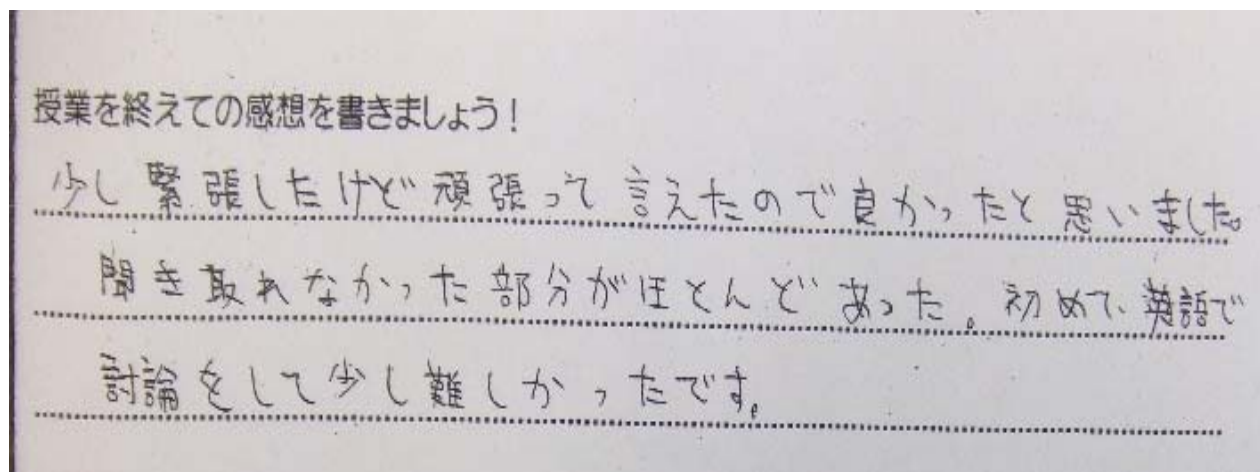 授業を終えての感想を書きましょう!
少し緊張したけど頑張って言えたので良かったと思いました。
聞き取れなかった部分がほとんどあった。初めて、英語で
討論をして少し難しかったです。